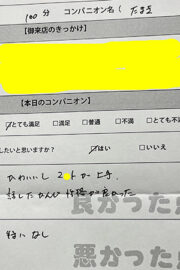 100分 コンパニオン名( たまき
【御来店のきっかけ】
【本日のコンパニオン】
☑とても満足 □満足 □普通 □不満 □とても不
したいと思いますか? ☑はい □いいえ
かわいいし
上手
話したかんじ性格が良かった
良かった点
特になし
悪かった点